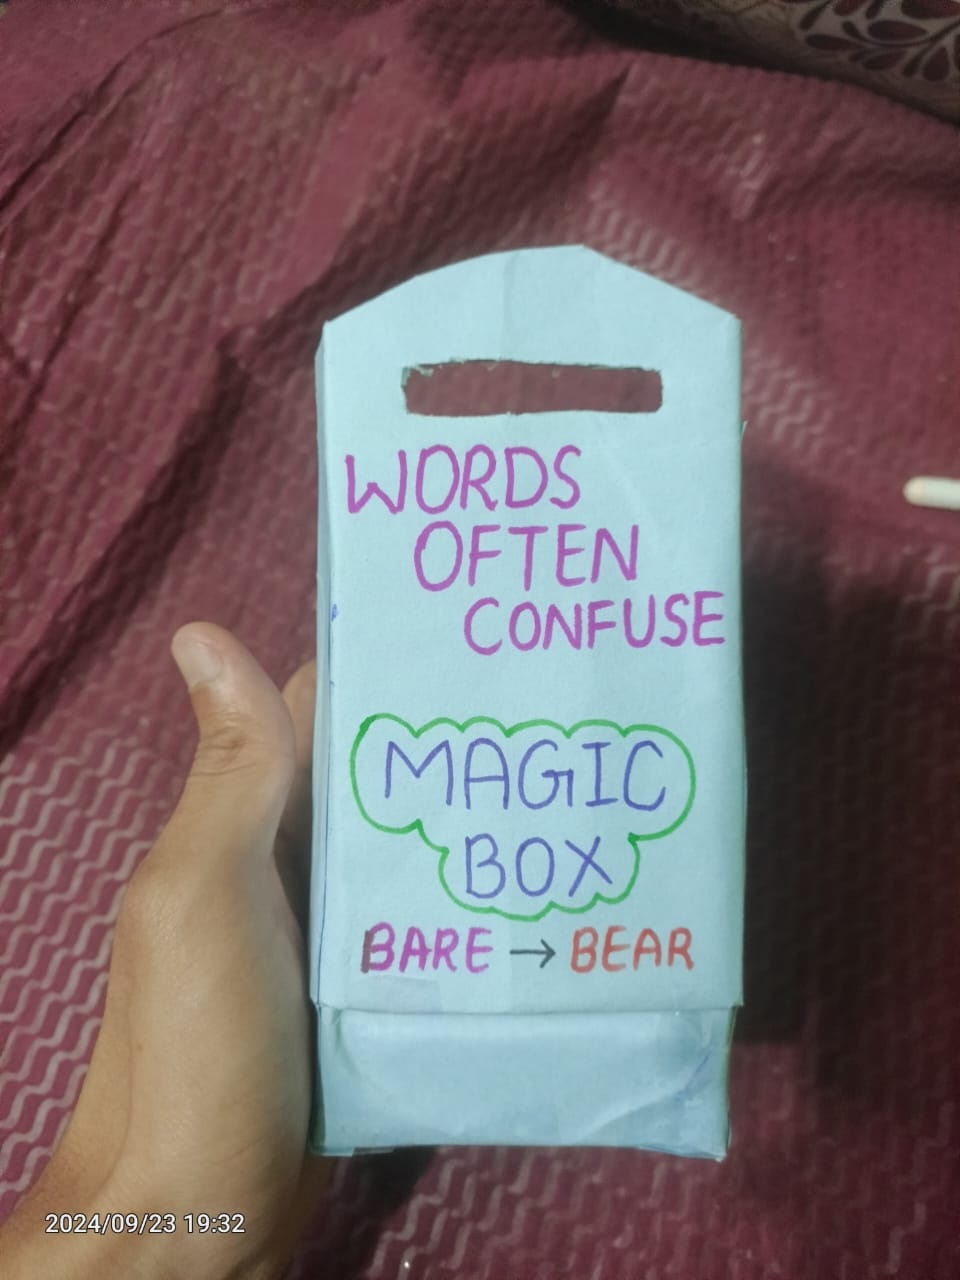 WORDS
OFTEN
CONFUSE
MAGIC
BOX
BARE → BEAR
2024/09/23 19:32